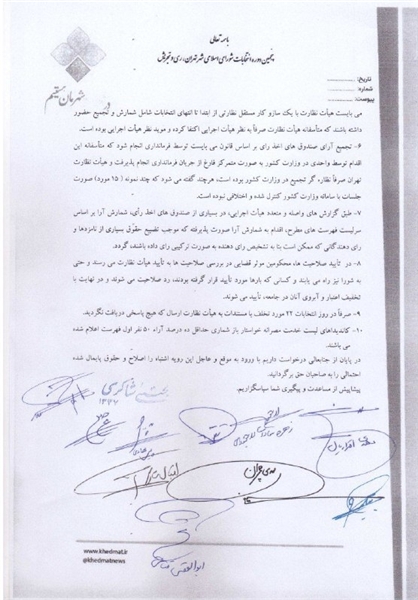 باسمه تعالی
پنجمین دوره انتخابات شورای اسلامی شهر تهران، ری و تجریش
تاریخ:
شماره:
پیوست:
می بایست هیأت نظارت با یک سازو کار مستقل نظارتی از ابتدا تا انتهای انتخابات شامل شمارش و تجمیع حضور
داشته باشند که متأسفانه هیأت نظارت صرفاً به نظر هیأت اجرایی اکتفا کرده و موید نظر هیأت اجرایی بوده است.
۶- تجمیع آرای صندوق های اخذ رای بر اساس قانون می بایست توسط فرمانداری انجام شود که متأسفانه این
اقدام توسط واحدی در وزارت کشور به صورت متمرکز فارغ از جریان فرمانداری انجام پذیرفت و هیأت نظارت
تهران صرفاً نظاره گر تجمیع در وزارت کشور بوده است، هرچند گفته می شود که چند نمونه (۱۵ مورد) صورت
جلسات با سامانه وزارت کشور کنترل شده و اختلافی نبوده است.
۷- طبق گزارش های واصله و متعدد هیأت اجرایی، در بسیاری از صندوق های اخذ رأی، شمارش آرا بر اساس
سرلیست فهرست های مطرح، اقدام به شمارش آرا صورت پذیرفته که موجب تضییع حقوق بسیاری از نامزدها و
رای دهندگانی که ممکن است بنا به تشخیص رای دهنده به صورت ترکیبی رای داده باشند، گردد.
۸- در تأیید صلاحیت ها، محکومین موثر قضایی در بررسی صلاحیت ها به تأیید هیأت نظارت می رسند و حتی
به شورا نیز راه می یابند و کسانی که بارها مورد تأیید قرار گرفته بودند، رد صلاحیت می شوند و در نهایت با
تخفیف اعتبار و آبروی آنان در جامعه، تأیید می شوند.
۹- صرفاً در روز انتخابات ۲۲ مورد تخلف با مستندات به هیأت نظارت ارسال که هیچ پاسخی دریافت نگردید.
۱۰- کاندیداهای لیست خدمت مصرانه خواستار باز شماری حداقل ده درصد آراء ۵۰ نفر اول فهرست اعلام شده
می باشند.
در پایان از جنابعالی درخواست داریم با ورود به موقع و عاجل این رویه اشتباه را اصلاح و حقوق پایمال شده
احتمالی را به صاحبان حق برگردانید.
پیشاپیش از مساعدت و پیگیری شما سپاسگزاریم.
مهدی چمران
www.khedmat.ir
@khedmatnews